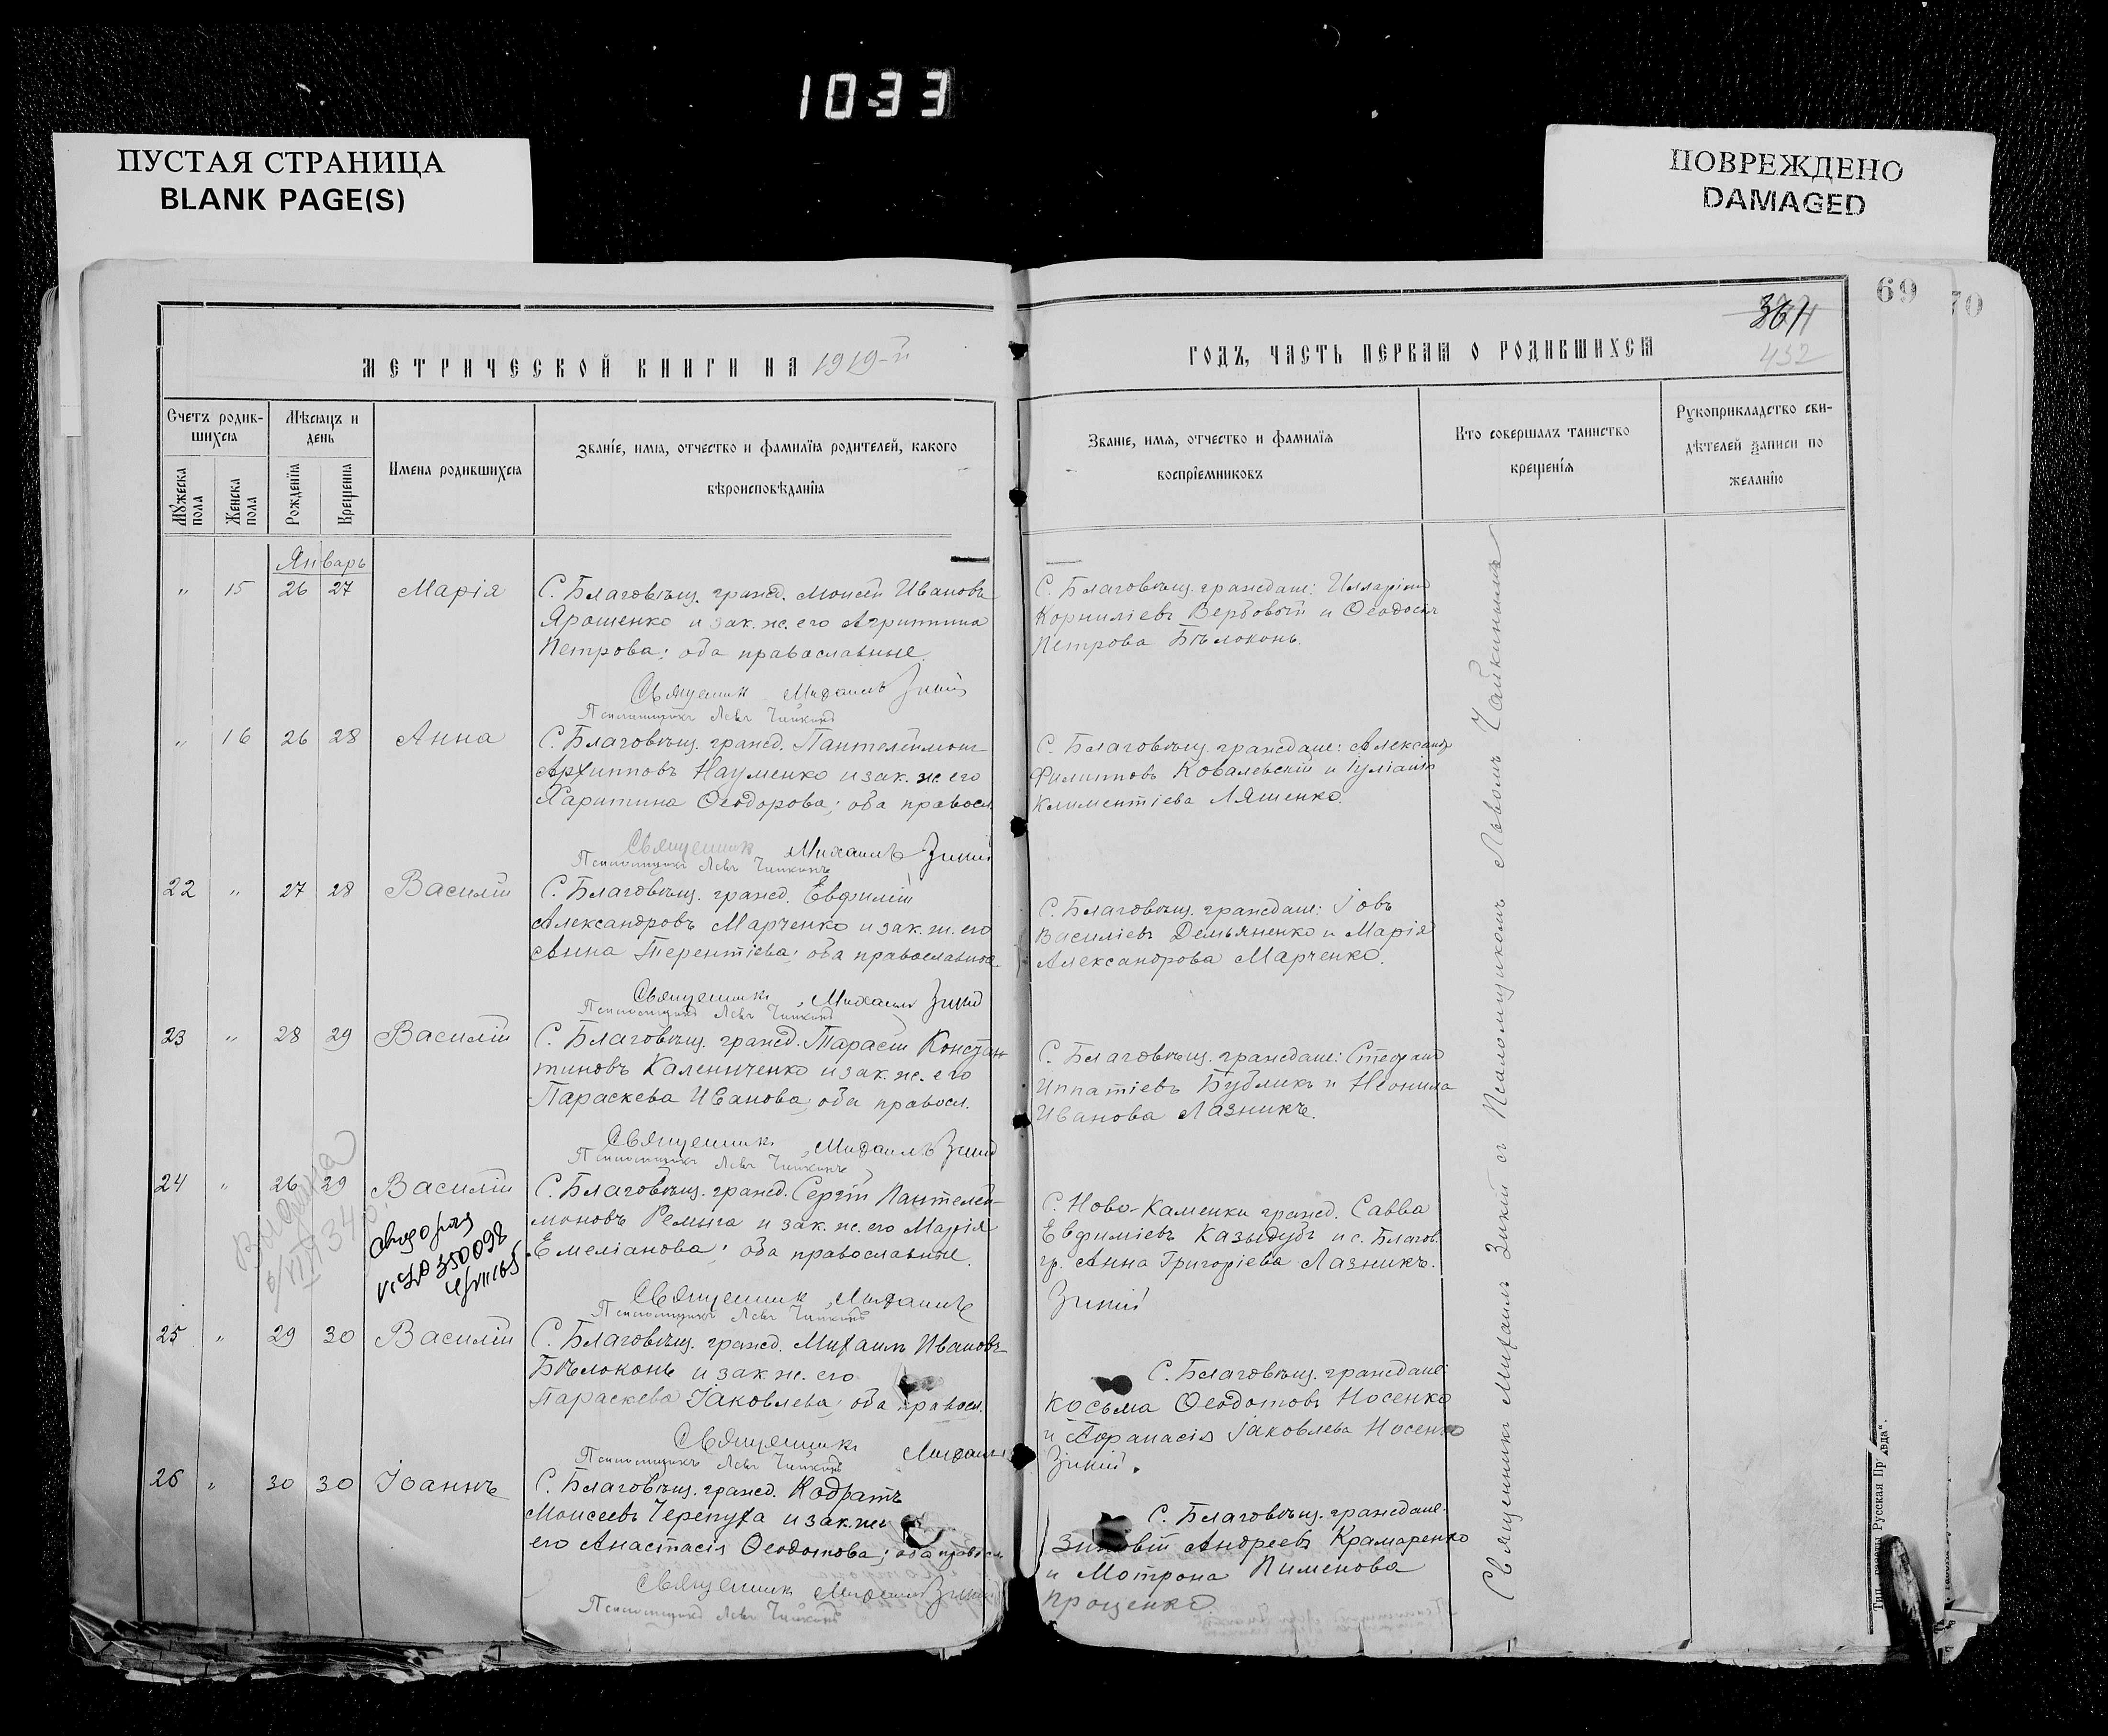 1033
ПУСТАЯ СТРАНИЦА
BLANK PAGE(S)
ПОВРЕЖДЕНО
DAMAGED
69
70
361
432
МЕТРИЧЕСКОЙ КНИГИ НА 1919-й
ГОДЪ, ЧАСТЬ ПЕРВАЯ О РОДИВШИХСЯ
Счетъ родив-
шихся
Мѣсяцъ и
день
Мужеска пола
Женска пола
Рожденїя
Крещенїя
Имена родившихся
Званїе, имя, отчество и фамилїя родителей, какого
вѣроисповѣданїя
Званїе, имя, отчество и фамилїя
воспрїемниковъ
Кто совершалъ таинство
крещенїя
Рукоприкладство сви-
дѣтелей записи по
желанїю
Январь
" 15 26 27 Марія
С. Благовѣщ. гражд. Моисей Ивановъ
Ярошенко и зак. ж. его Агриппина
Петрова; оба православные.
Священник Михаилъ Зикій
Псаломщикъ Левъ Чайкинъ
С. Благовѣщ. граждане: Илларіонъ
Корниліевъ Вербовый и Ѳеодосія
Петрова Бѣлоконь.
" 16 26 28 Анна
С. Благовѣщ. гражд. Пантелеимонъ
Архипповъ Науменко и зак. ж. его
Харитина Ѳеодорова; оба правосл.
Священник Михаилъ Зикій
Псаломщикъ Левъ Чайкинъ
С. Благовѣщ. граждане: Александръ
Филипповъ Ковалевскій и Іуліанія
Климентіева Ляшенко.
22 " 27 28 Василій
С. Благовѣщ. гражд. Евфимій
Александровъ Марченко и зак. ж. его
Анна Терентіева; оба православные
Священник Михаилъ Зикій
Псаломщикъ Левъ Чайкинъ
С. Благовѣщ. граждане: Іовъ
Василіевъ Демьяненко и Марія
Александрова Марченко.
23 " 28 29 Василій
С. Благовѣщ. гражд. Тарасій Констан-
тиновъ Калениченко и зак. ж. его
Параскева Иванова; оба правосл.
Священник Михаилъ Зикій
Псаломщикъ Левъ Чайкинъ
С. Благовѣщ. граждане: Стефанъ
Иппатіевъ Бубликъ и Неонила
Иванова Лазникъ.
24 " 26 29 Василій
С. Благовѣщ. гражд. Сергій Пантелей-
моновъ Ремыга и зак. ж. его Марія
Емеліанова; оба православные.
Священник Михаилъ
Псаломщикъ Левъ Чайкинъ
С. Ново-Каменки гражд. Савва
Евфиміевъ Казыдубъ и с. Благов.
гр. Анна Григоріева Лазникъ.
Зикій
350098
25 " 29 30 Василій
С. Благовѣщ. гражд. Михаилъ Ивановъ
Бѣлоконь и зак. ж. его
Параскева Іаковлева; оба правосл.
Священник Михаилъ
Псаломщикъ Левъ Чайкинъ
С. Благовѣщ. граждане:
Косьма Ѳеодотовъ Носенко
и Афанасія Іаковлева Носенко
Зикій.
26 " 30 30 Іоаннъ
С. Благовѣщ. гражд. Кодратъ
Моисеевъ Черепуха и зак. ж.
его Анастасія Ѳеодотова; оба правосл.
Священник Михаилъ Зикій
Псаломщикъ Левъ Чайкинъ
С. Благовѣщ. граждане:
Зиновій Андреевъ Крамаренко
и Мотрона Пименова
Проценко
Священникъ Михаилъ Зикій съ Псаломщикомъ Львомъ Чайкинымъ